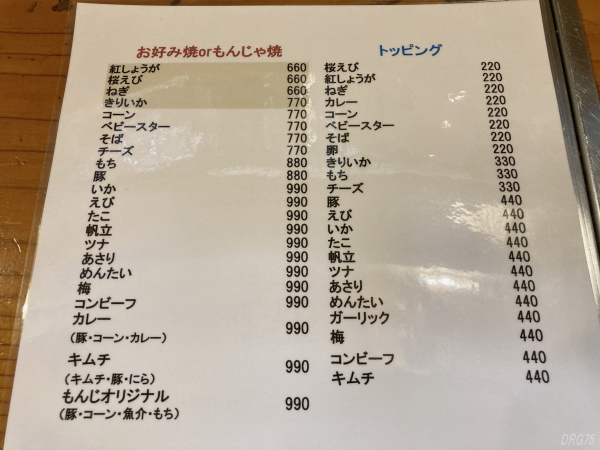 お好み焼orもんじゃ焼
紅しょうが 660
桜えび 660
ねぎ 660
きりいか 770
コーン 770
ベビースター 770
そば 770
チーズ 770
もち 880
豚 880
いか 990
えび 990
たこ 990
帆立 990
ツナ 990
あさり 990
めんたい 990
梅 990
コンビーフ 990
カレー 990
(豚・コーン・カレー)
キムチ 990
(キムチ・豚・にら)
もんじオリジナル 990
(豚・コーン・魚介・もち)
トッピング
桜えび 220
紅しょうが 220
ねぎ 220
カレー 220
コーン 220
ベビースター 220
そば 220
卵 220
きりいか 330
もち 330
チーズ 330
豚 440
えび 440
いか 440
たこ 440
帆立 440
ツナ 440
あさり 440
めんたい 440
ガーリック 440
梅 440
コンビーフ 440
キムチ 440
DRG75